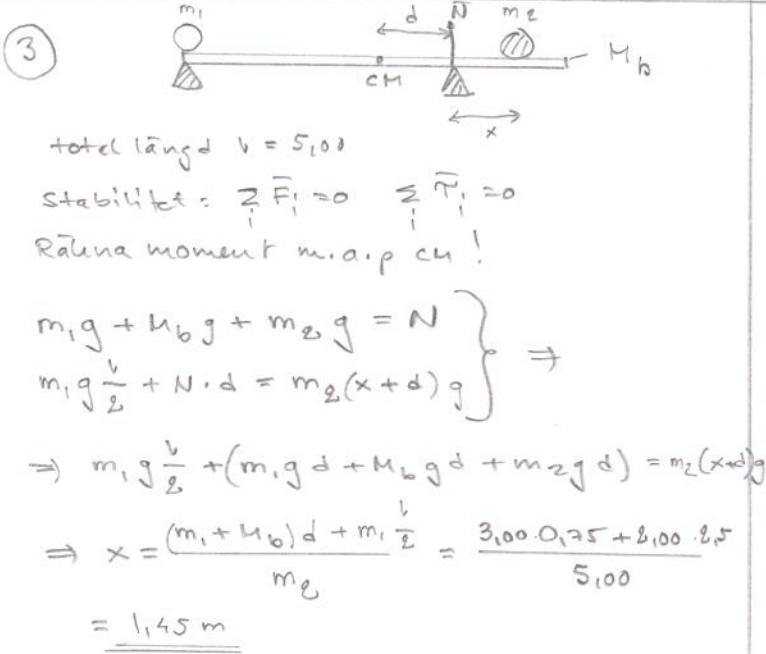 3
m₁ d N̄ m₂
CM M_b
x
total längd l = 5,00
Stabilitet: Σᵢ F̄ᵢ = 0 Σᵢ τ̄ᵢ = 0
Räkna moment m.a.p CM!
m₁g + M_b g + m₂g = N
m₁g l/2 + N·d = m₂(x+d)g } ⇒
⇒ m₁g l/2 + (m₁gd + M_b gd + m₂gd) = m₂(x+d)g
⇒ x = ((m₁ + M_b)d + m₁ l/2) / m₂ = (3,00·0,75 + 2,00·2,5) / 5,00
= 1,45 m